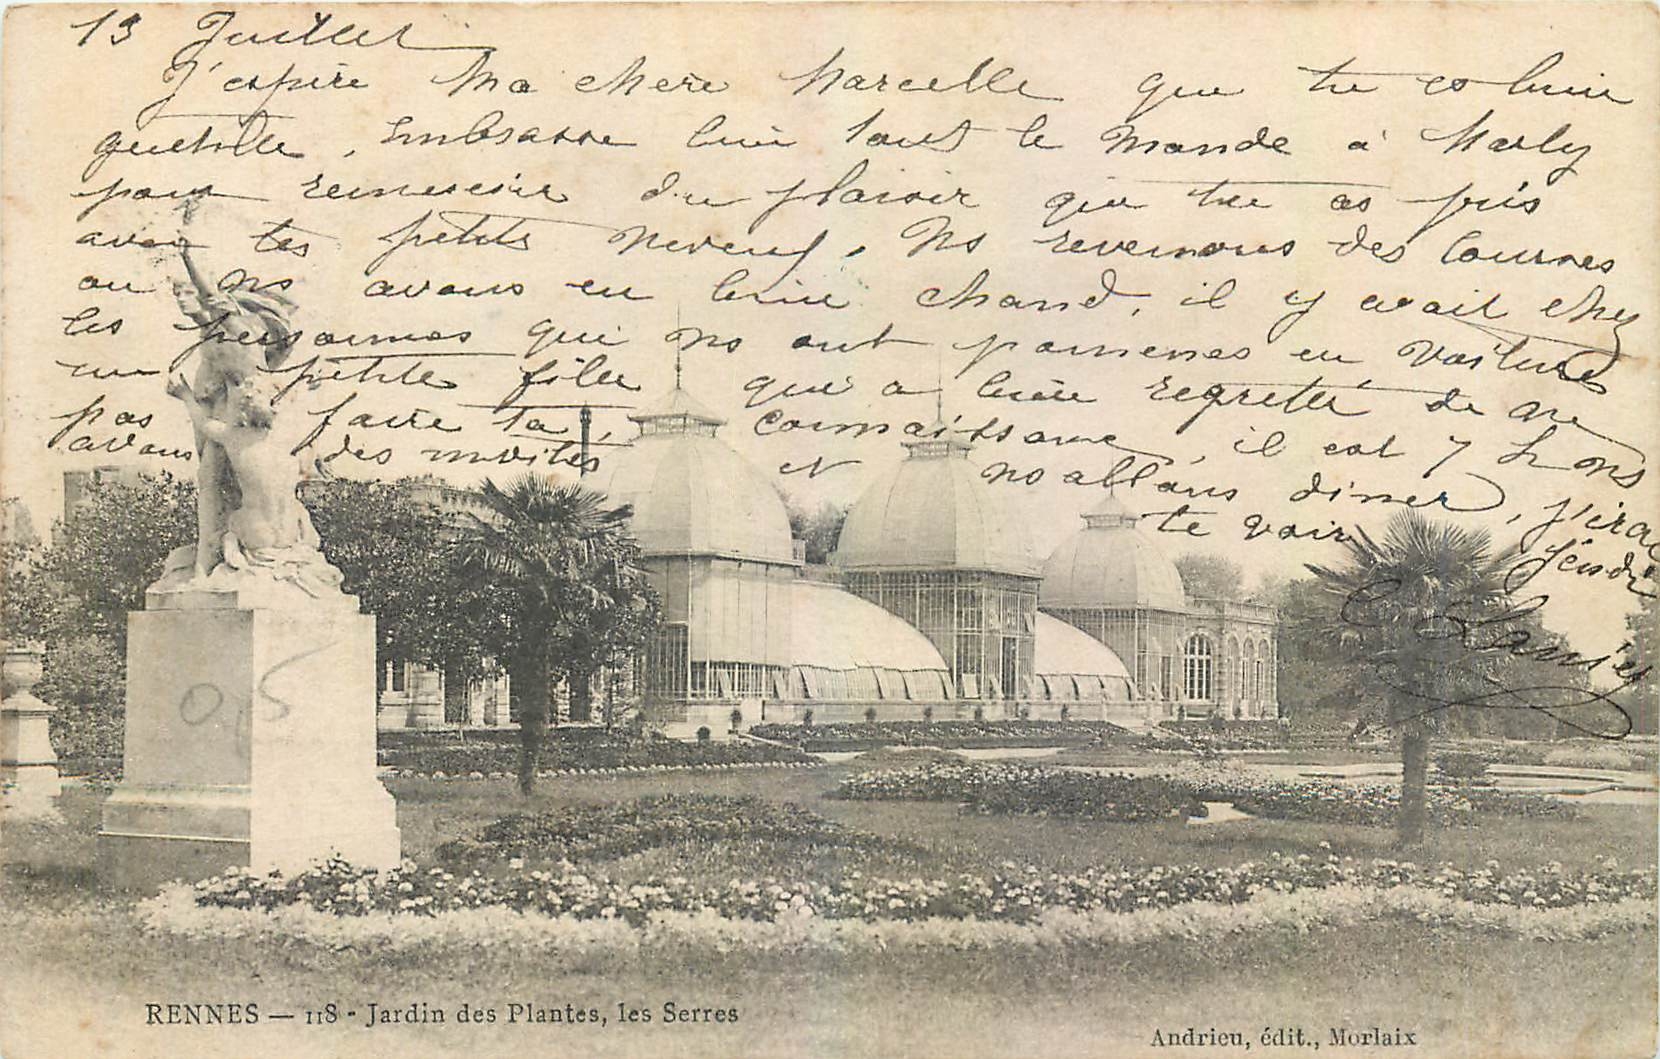 13 Juillet
J'espère Ma chère Marcelle que tu es bien
guérie, Embrasse bien tout le monde à Marly
pour remercier du plaisir que tu as pris
avec tes petits neveux, Ns revenons des courses
ou ns avons eu bien chaud, il y avait chez
les personnes qui ns ont promenés en voiture
une petite fille qui a bien regretté de ne
pas faire ta connaissance, il est 7 h ns
avons des invités et ns allons diner, j'irai
te voir
Jeudi
RENNES — 118 - Jardin des Plantes, les Serres
Andrieu, édit., Morlaix